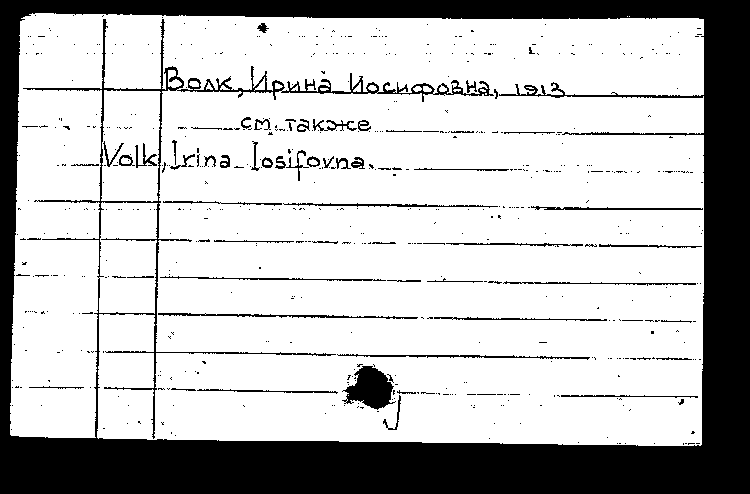 Волк, Ирина Иосифовна, 1913
см. также
Volk, Irina Iosifovna.